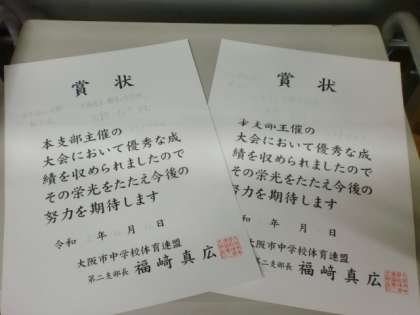 賞状
本支部主催の
大会において優秀な成
績を収められましたので
その栄光をたたえ今後の
努力を期待します
令和 年 月 日
大阪市中学校体育連盟
第二支部長 福﨑真広
賞状
本支部主催の
大会において優秀な成
績を収められましたので
その栄光をたたえ今後の
努力を期待します
月 日
大阪市中学校体育連盟
第二支部長 福﨑真広